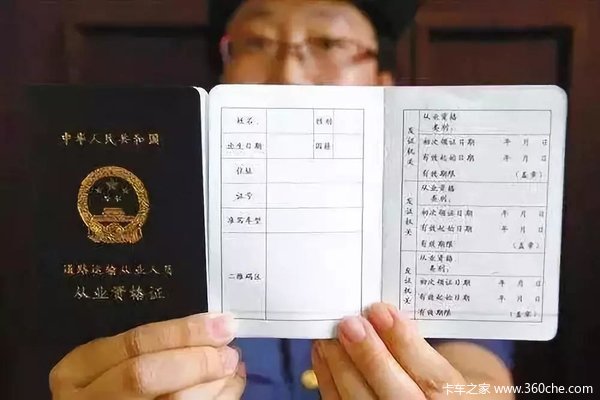 中华人民共和国
道路运输从业人员
从业资格证
姓名 性别
出生日期 国籍
住址
证号
准驾车型
二维码区
发证机关
从业资格
类别：
初次领证日期 年 月 日
有效起始日期 年 月 日
有效期限 （盖章）
发证机关
从业资格
类别：
初次领证日期 年 月 日
有效起始日期 年 月 日
有效期限 （盖章）
发证机关
从业资格
类别：
初次领证日期 年 月 日
有效起始日期 年 月 日
有效期限 （盖章）
卡车之家 www.360che.com